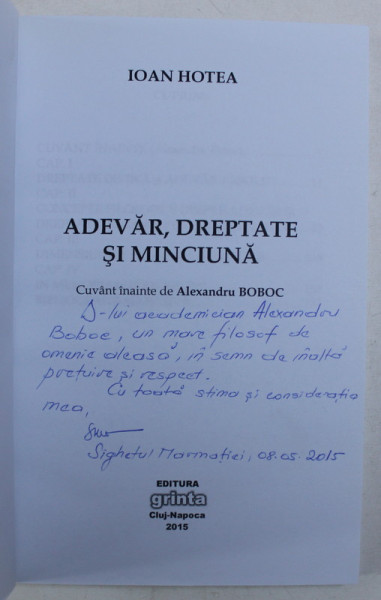 IOAN HOTEA
ADEVĂR, DREPTATE
ŞI MINCIUNĂ
Cuvânt înainte de Alexandru BOBOC
D-lui academician Alexandru
Boboc, un mare filosof de
omenie aleasă, în semn de înaltă
prețuire și respect.
Cu toată stima și considerația
mea,
Sighetul Marmației, 08.05.2015
EDITURA
grinta
Cluj-Napoca
2015